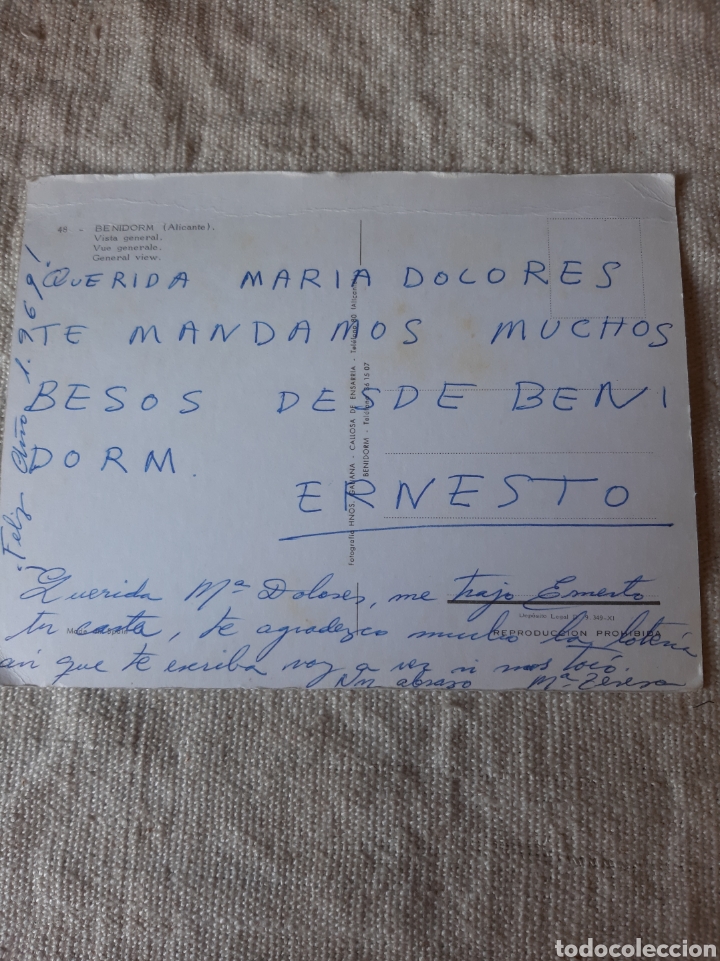 48 - BENIDORM (Alicante).
Vista general.
Vue generale.
General view.
QUERIDA MARIA DOLORES
TE MANDAMOS MUCHOS
BESOS DESDE BENI
DORM
ERNESTO
¡Feliz Año 1.969!
Fotografía HNOS. GALIANA - CALLOSA DE ENSARRIA - Teléfono 80 (Alicante)
BENIDORM
Querida Mª Dolores, me trajo Ernesto
tu carta, te agradezco mucho la lotería
así que te escriba voy a ver si nos tocó.
Un abrazo Mª Teresa
Depósito Legal
REPRODUCCION PROHIBIDA
todocoleccion